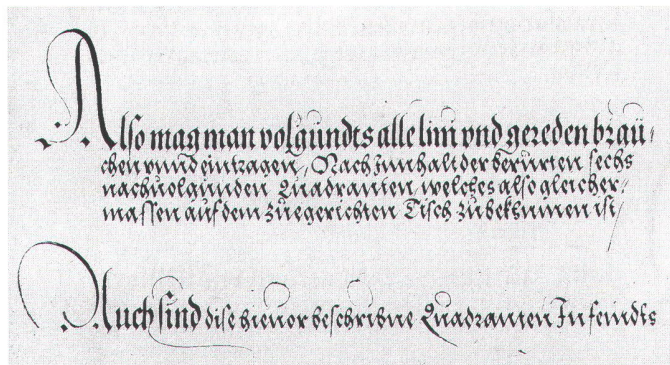 Also mag man volgundts alle lini vnd gereden brau-
chen vnnd eintragen, Nach Innhalt der berürten sechs
nachuolgunden Quadranten, welches also gleicher-
massen auf dem zuegerichten Tisch zubekhumen ist,
Auch sind dise hieuor beschribne Quadranten In feindts